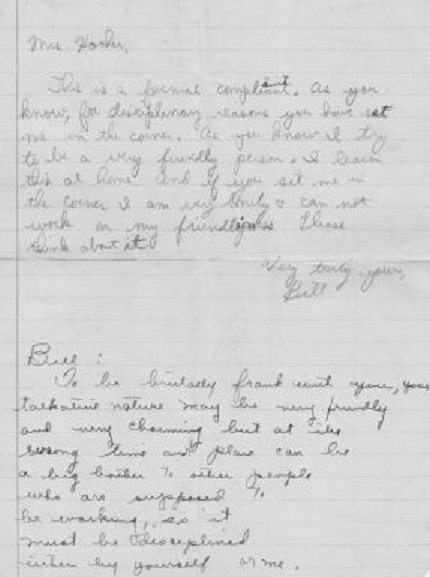 Mrs. Hooker,
This is a formal compliant. As you
know, for disciplinary reasons you have sat
me in the corner. As you know I try
to be a very friendly person. I learn
this at home. And if you sit me in
the corner I am very lonely & can not
work on my friendliness. Please
think about it
Very truly yours,
Bill
Bill :
To be brutally frank with you, your
talkative nature may be very friendly
and very charming but at the
wrong time and place can be
a big bother to other people
who are supposed to
be working, so it
must be disciplined
either by yourself or me.